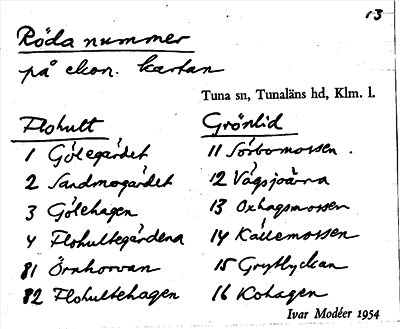 13
Röda nummer
på ekon. kartan
Tuna sn, Tunaläns hd, Klm. l.
Flohult
1 Gölegärdet
2 Sandmogärdet
3 Gölehagen
4 Flohultegärdena
81 Örnhorvan
82 Flohultehagen
Grönlid
11 Sörbomossen.
12 Vågsjoärna
13 Oxhagsmossen
14 Källemossen
15 Grytlyckan
16 Kohagen
Ivar Modéer 1954